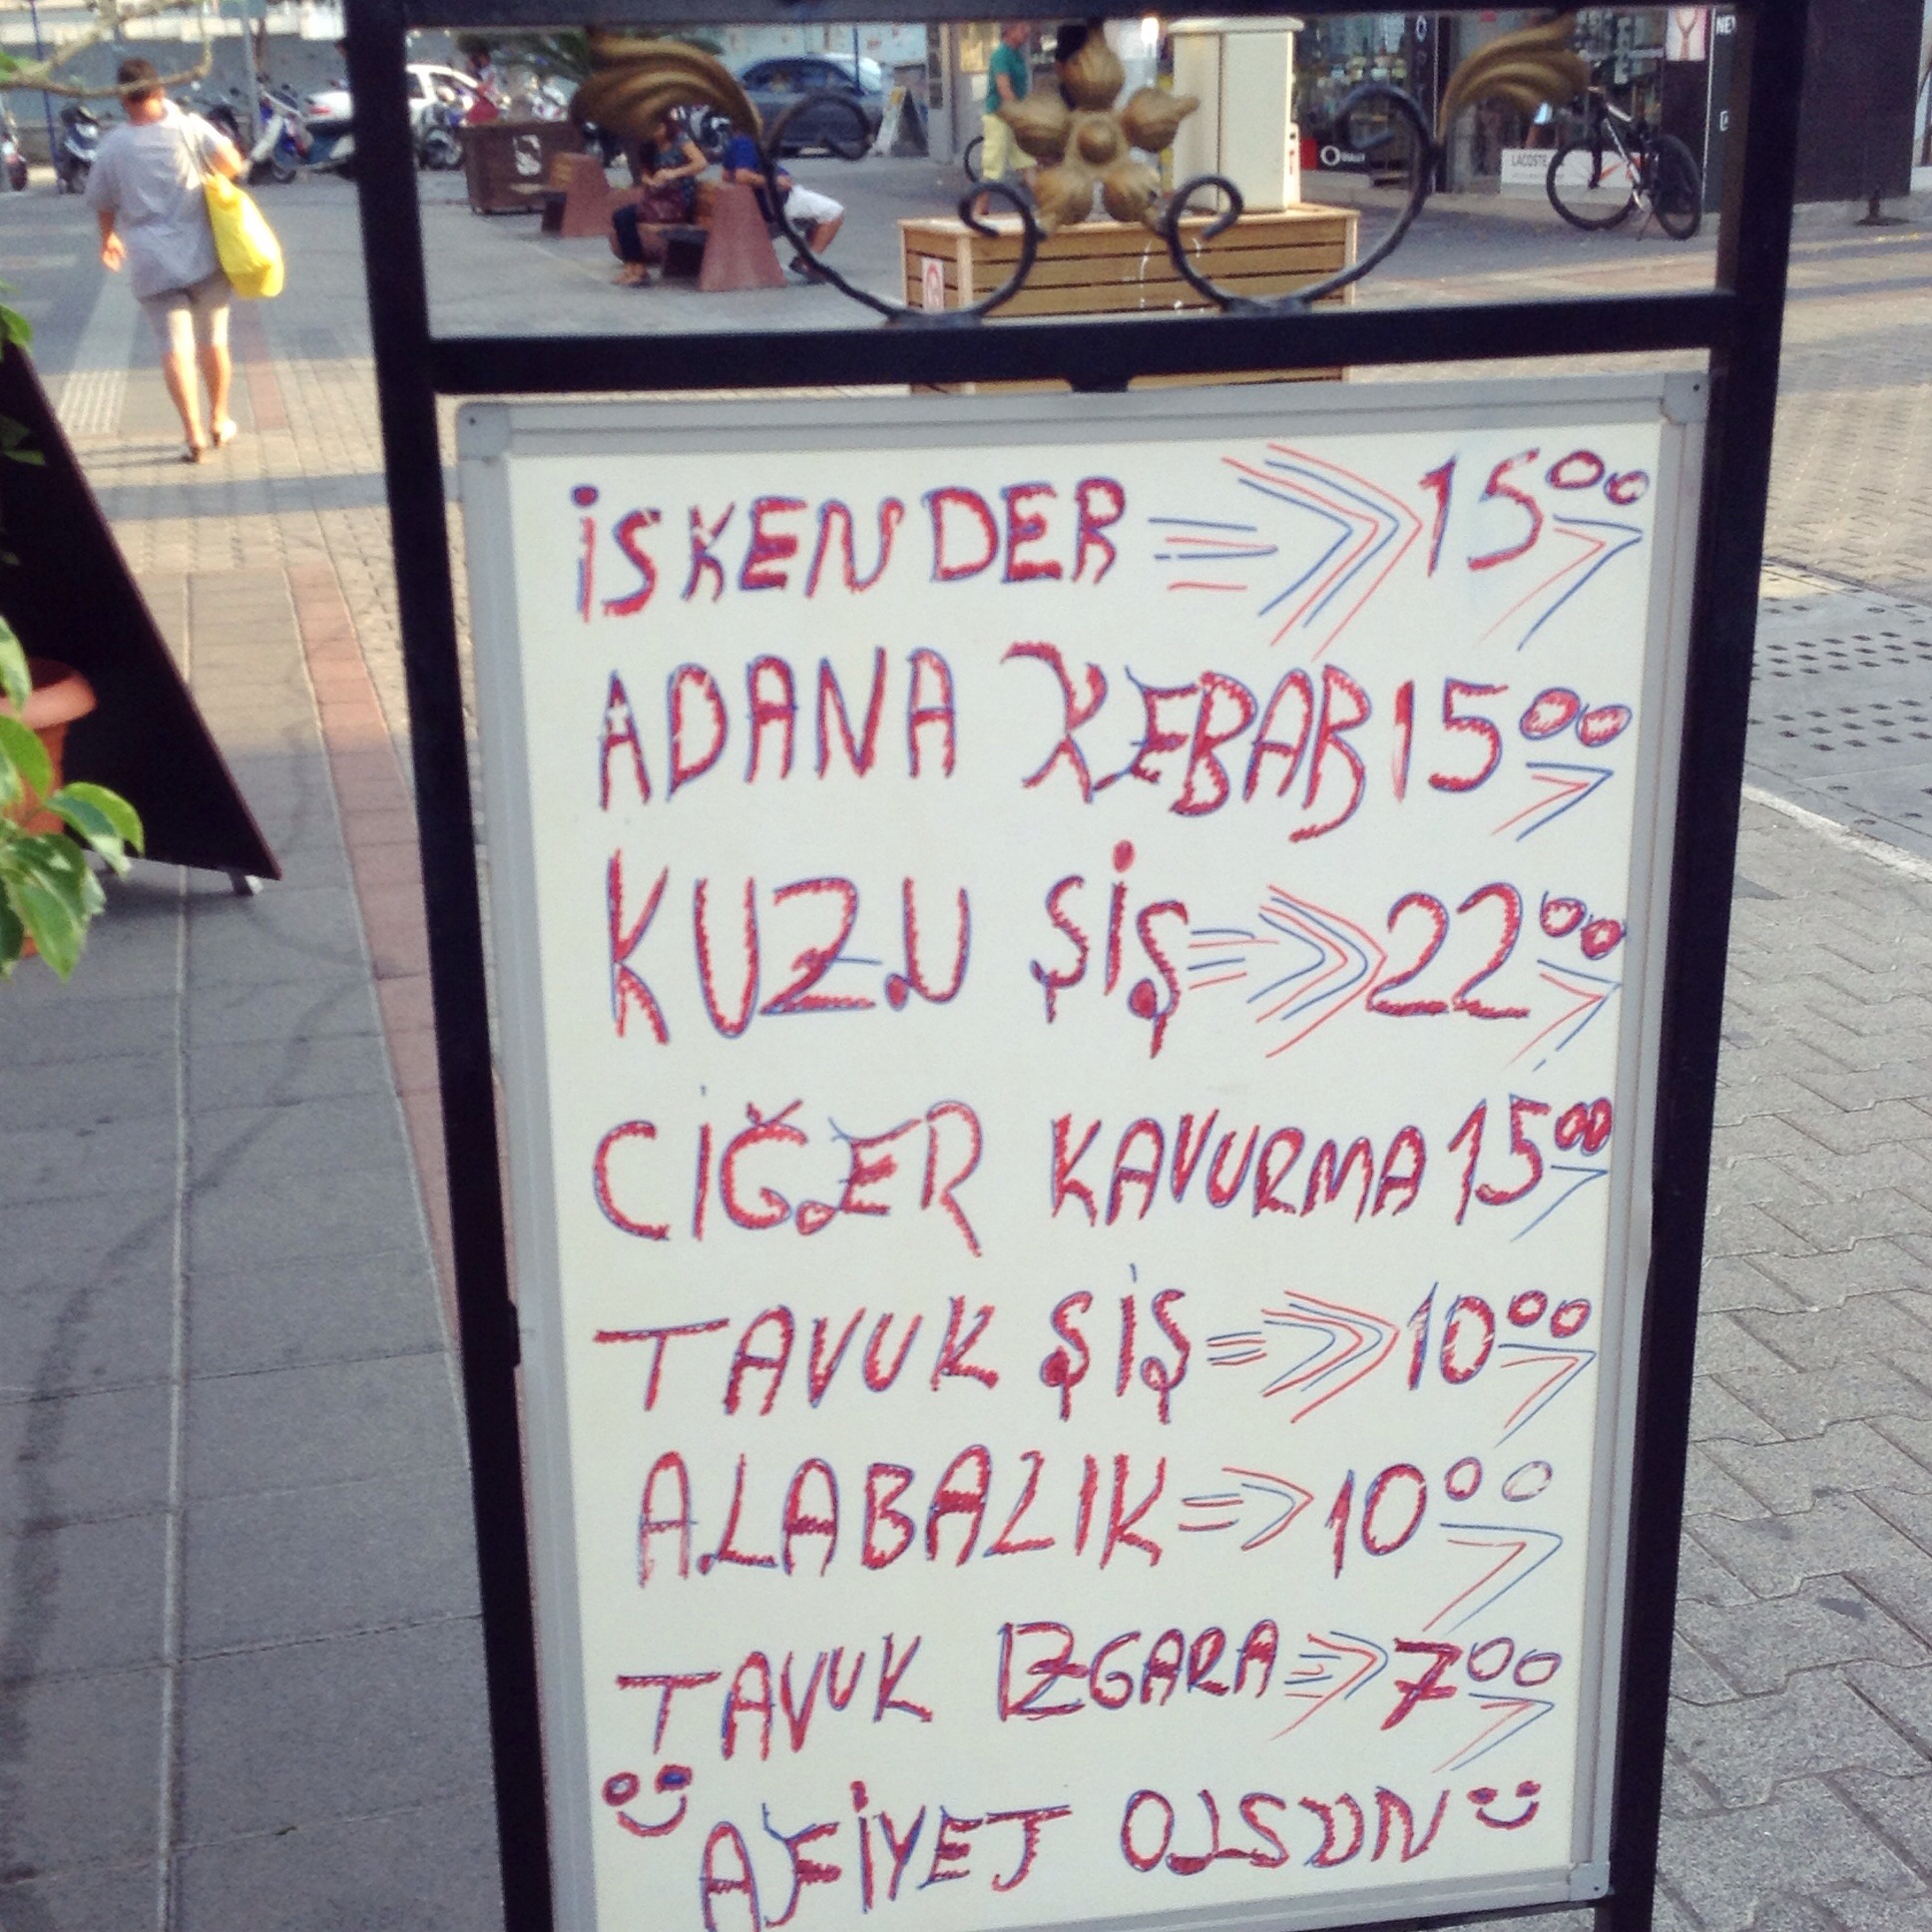 LACOSTE
NE
İSKENDER => 15⁰⁰
ADANA KEBAB 15⁰⁰
KUZU ŞİŞ => 22⁰⁰
CİĞER KAVURMA 15⁰⁰
TAVUK ŞİŞ => 10⁰⁰
ALABALIK => 10⁰⁰
TAVUK IZGARA => 7⁰⁰
AFİYET OLSUN